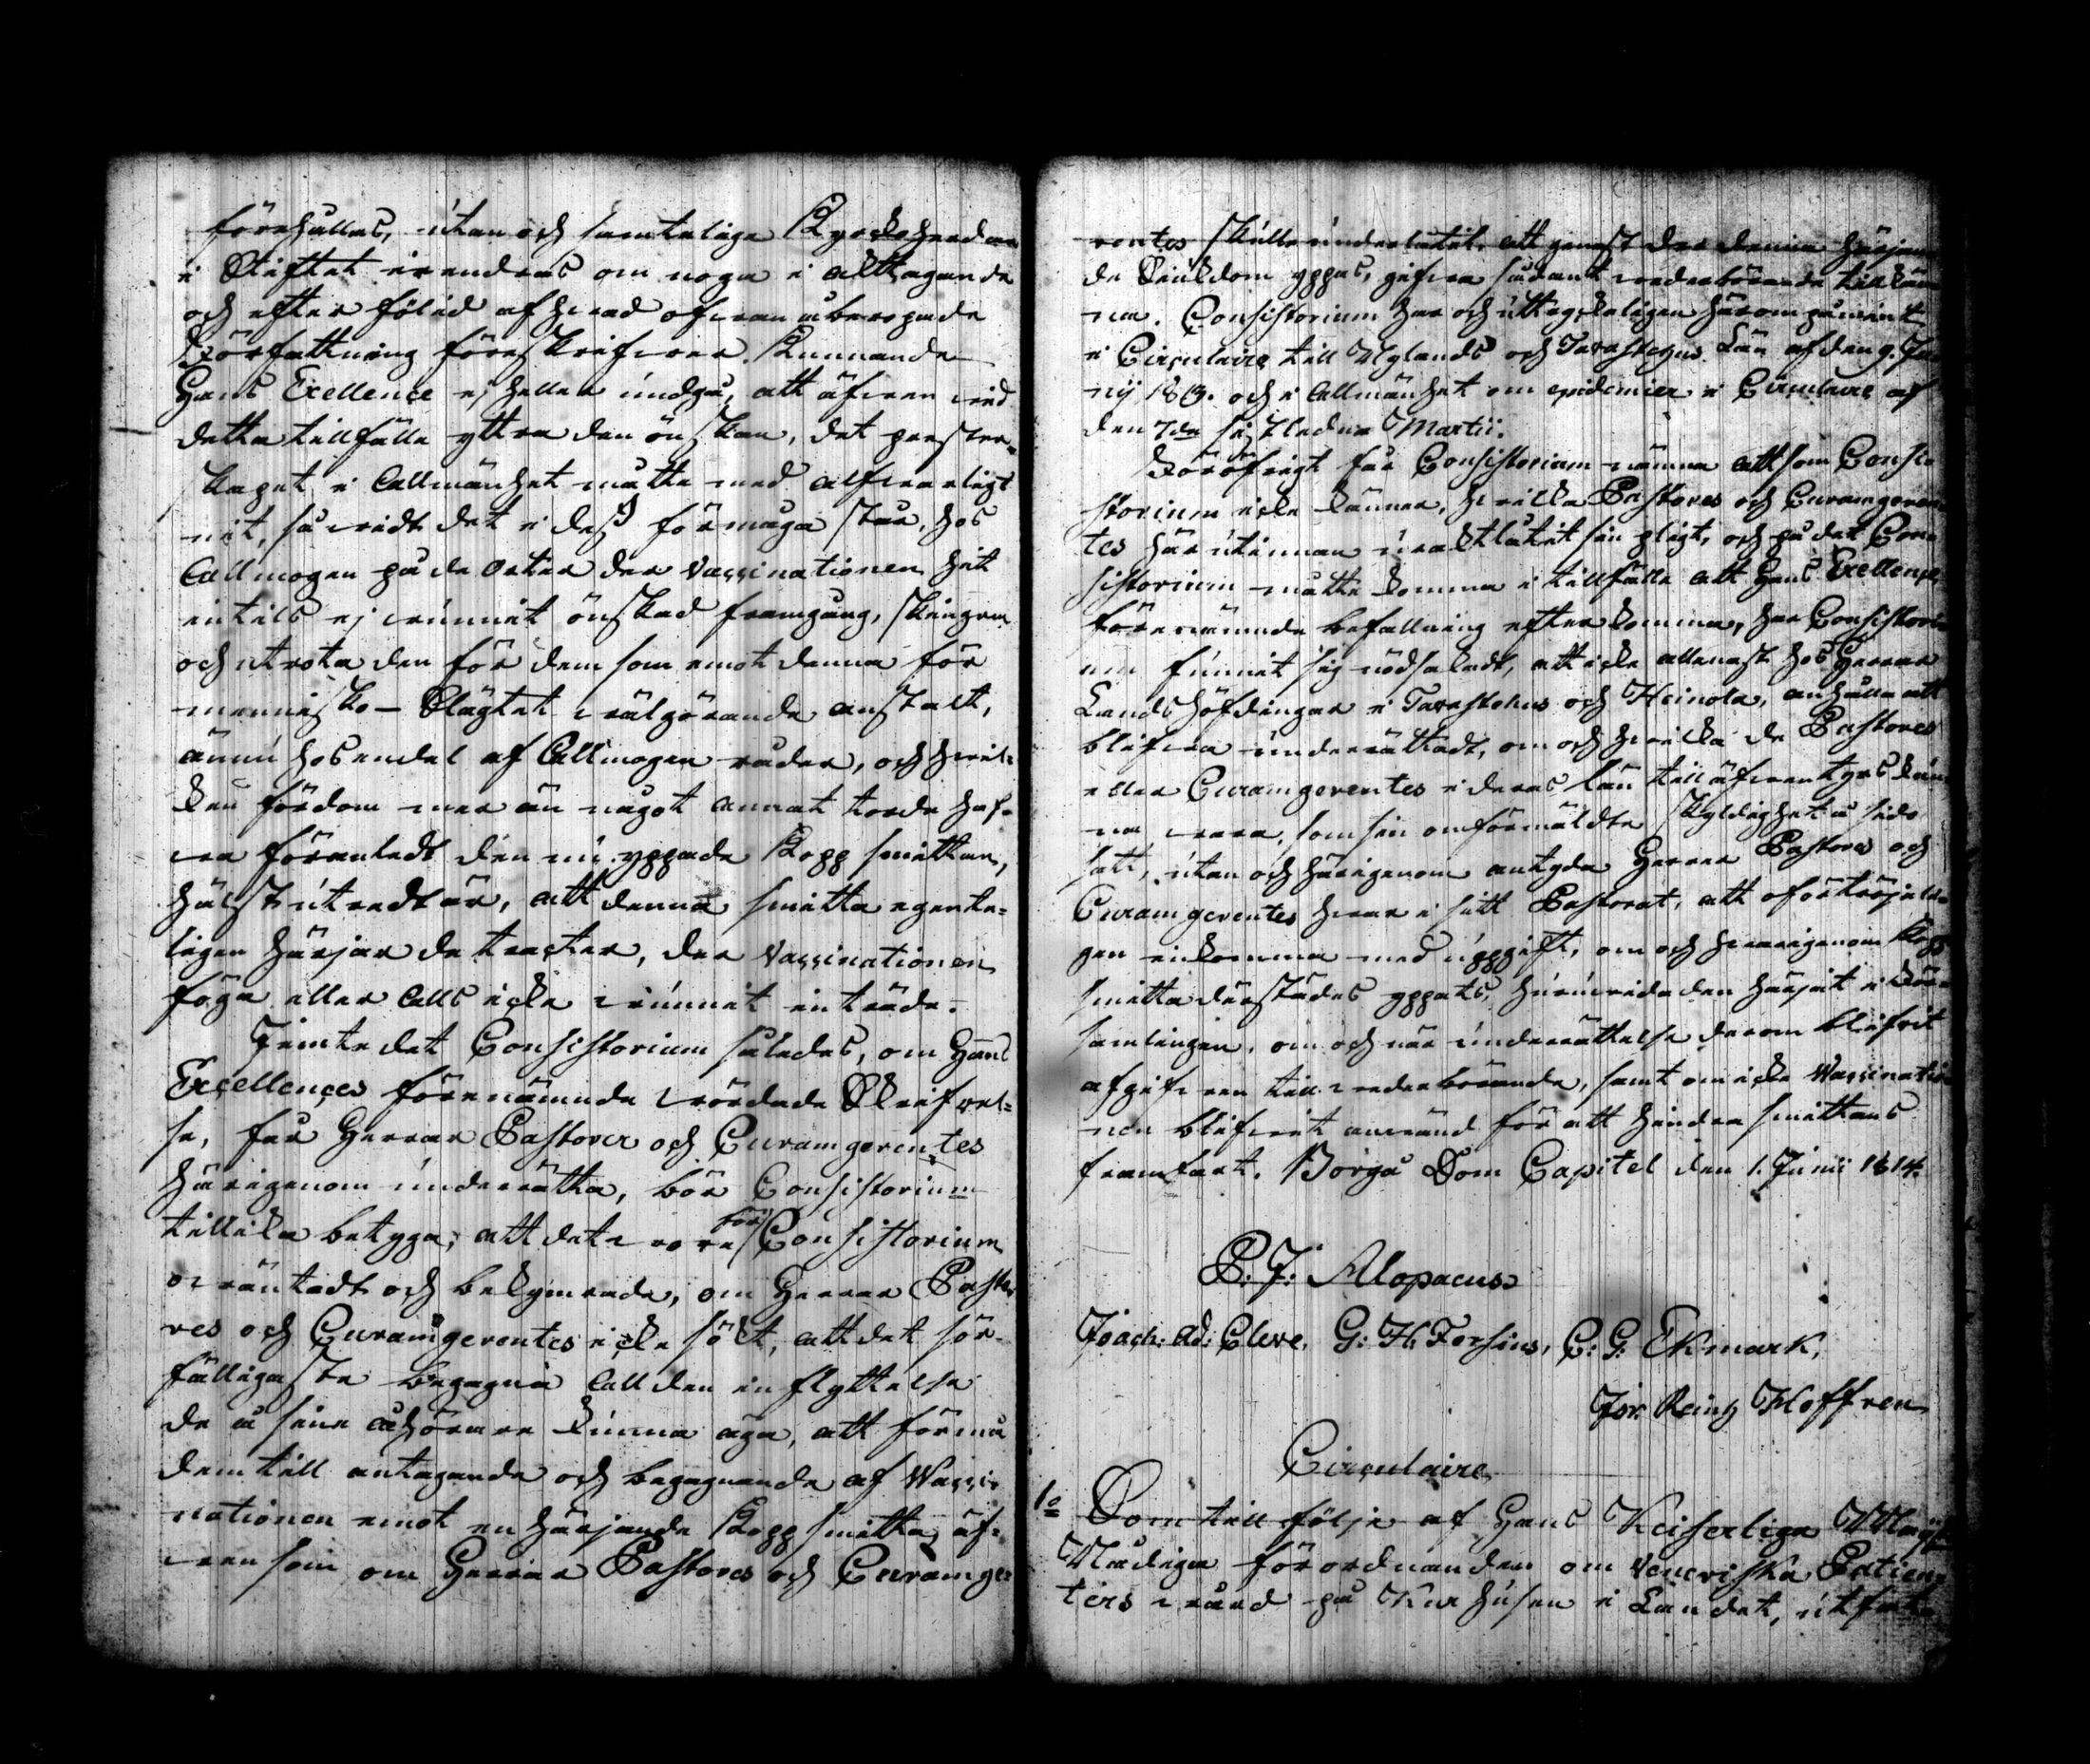 förehållas, utan och samtelige Kyrkoherdar
i Stiftet erendras om noga i akttagande
och efter följd af hvad ofvan åberopade
Författning föreskrifver. Kunnande
Hans Exellence ej heller undgå, att äfven vid
detta tillfälle yttra den önskan, det prester-
skapet i allmänhet måtte med alfvarligt
nit, så vidt det i dess förmåga står, hos
Allmogen på de orter der Vaccinationen hit
intils ej vunnit önskad framgång, skingra
och utrota den för dem som emot denna för
mennisko-Slägtet välgörande anstalt,
ännu hos en del af Allmogen råder, och hvil-
ken fördom mer än något annat torde haf-
va föranledt den nu yppade Kopp smittan,
hälst utredt är, att denna smitta egente-
ligen härjar de tracter, der Vaccinationen
föga eller alls icke vunnit inträde.
Jemte det Consistorium således, om Hans
Excellences förenämnde vördade Skrifvel-
se, får Herrar Pastores och Curamgerentes
härigenom underrätta, bör Consistorium
tillika betyga, att det vore för Consistorium
oväntadt och bekymrande, om Herrar Pasto
res och Curamgerentes icke sökt, att det sör-
fälligaste begagna all den inflyttelse
de å sine åhörare kunna äga, att förmå
dem till antagande och begagnande af Vacci-
nationen emot en härjande Kopp smitta, äf-
ven som om Herrar Pastores och Curamge-
rentes skulle underlåtit, att genast der denna härjan
de Sjukdom yppas, gifva sådant vederbörande tillkän
na. Consistorium har och uttryckeligen härom påmint
i Circulaire till Nylands och Tavastehus Län af den 9. Ju
nij 1813. och i allmänhet om epidemier i Circulaire af
den 7de sistledne Martii.
Föröfrigt får Consistorium nämna att som Consi
storium icke känner, hvilka Pastores och Curamgeren
tes härutinnan uraktlåtit sin pligt, och på det Con
sistorium måtte komma i tillfälle att Hans Exellences
förenämnde befallning efterkomma, har Consistori
um funnit sig nödsakadt, att icke allenast hos Herrar
Landshöfdingar i Tavastehus och Heinola, anhålla att
blifva underrättadt, om och hvilka de Pastores
eller Curamgerentes i deras län till äfventyrs kun
na vara, som sin omförmäldte skyldighet å sido
satt, utan och härigenom antyda Herrar Pastores och
Curamgerentes hvar i sitt Pastorat, att oförtöfveli-
gen inkomma med uppgift, om och hvarigenom Kopp
smitta därstädes yppats, huruvida den härjat i För
samlingen, om och när underrättelse derom blifvit
afgifven till vederbörande, samt om icke Vaccinatio
nen blifvit använd för att hindra smittans
framfart. Borgå Dom Capitel den 1. Junii 1814.
P: J: Alopaeus
Joach: Ad: Cleve. G: H: Forsius, C: G: Ekmark,
Jor. Reinh Hoffren
Circulaire
1o Som till följe af Hans Keiserliga Majts
Nådiga förordnanden om Veneriska Patien-
ters vård på Kurhusen i Landet, utfärd